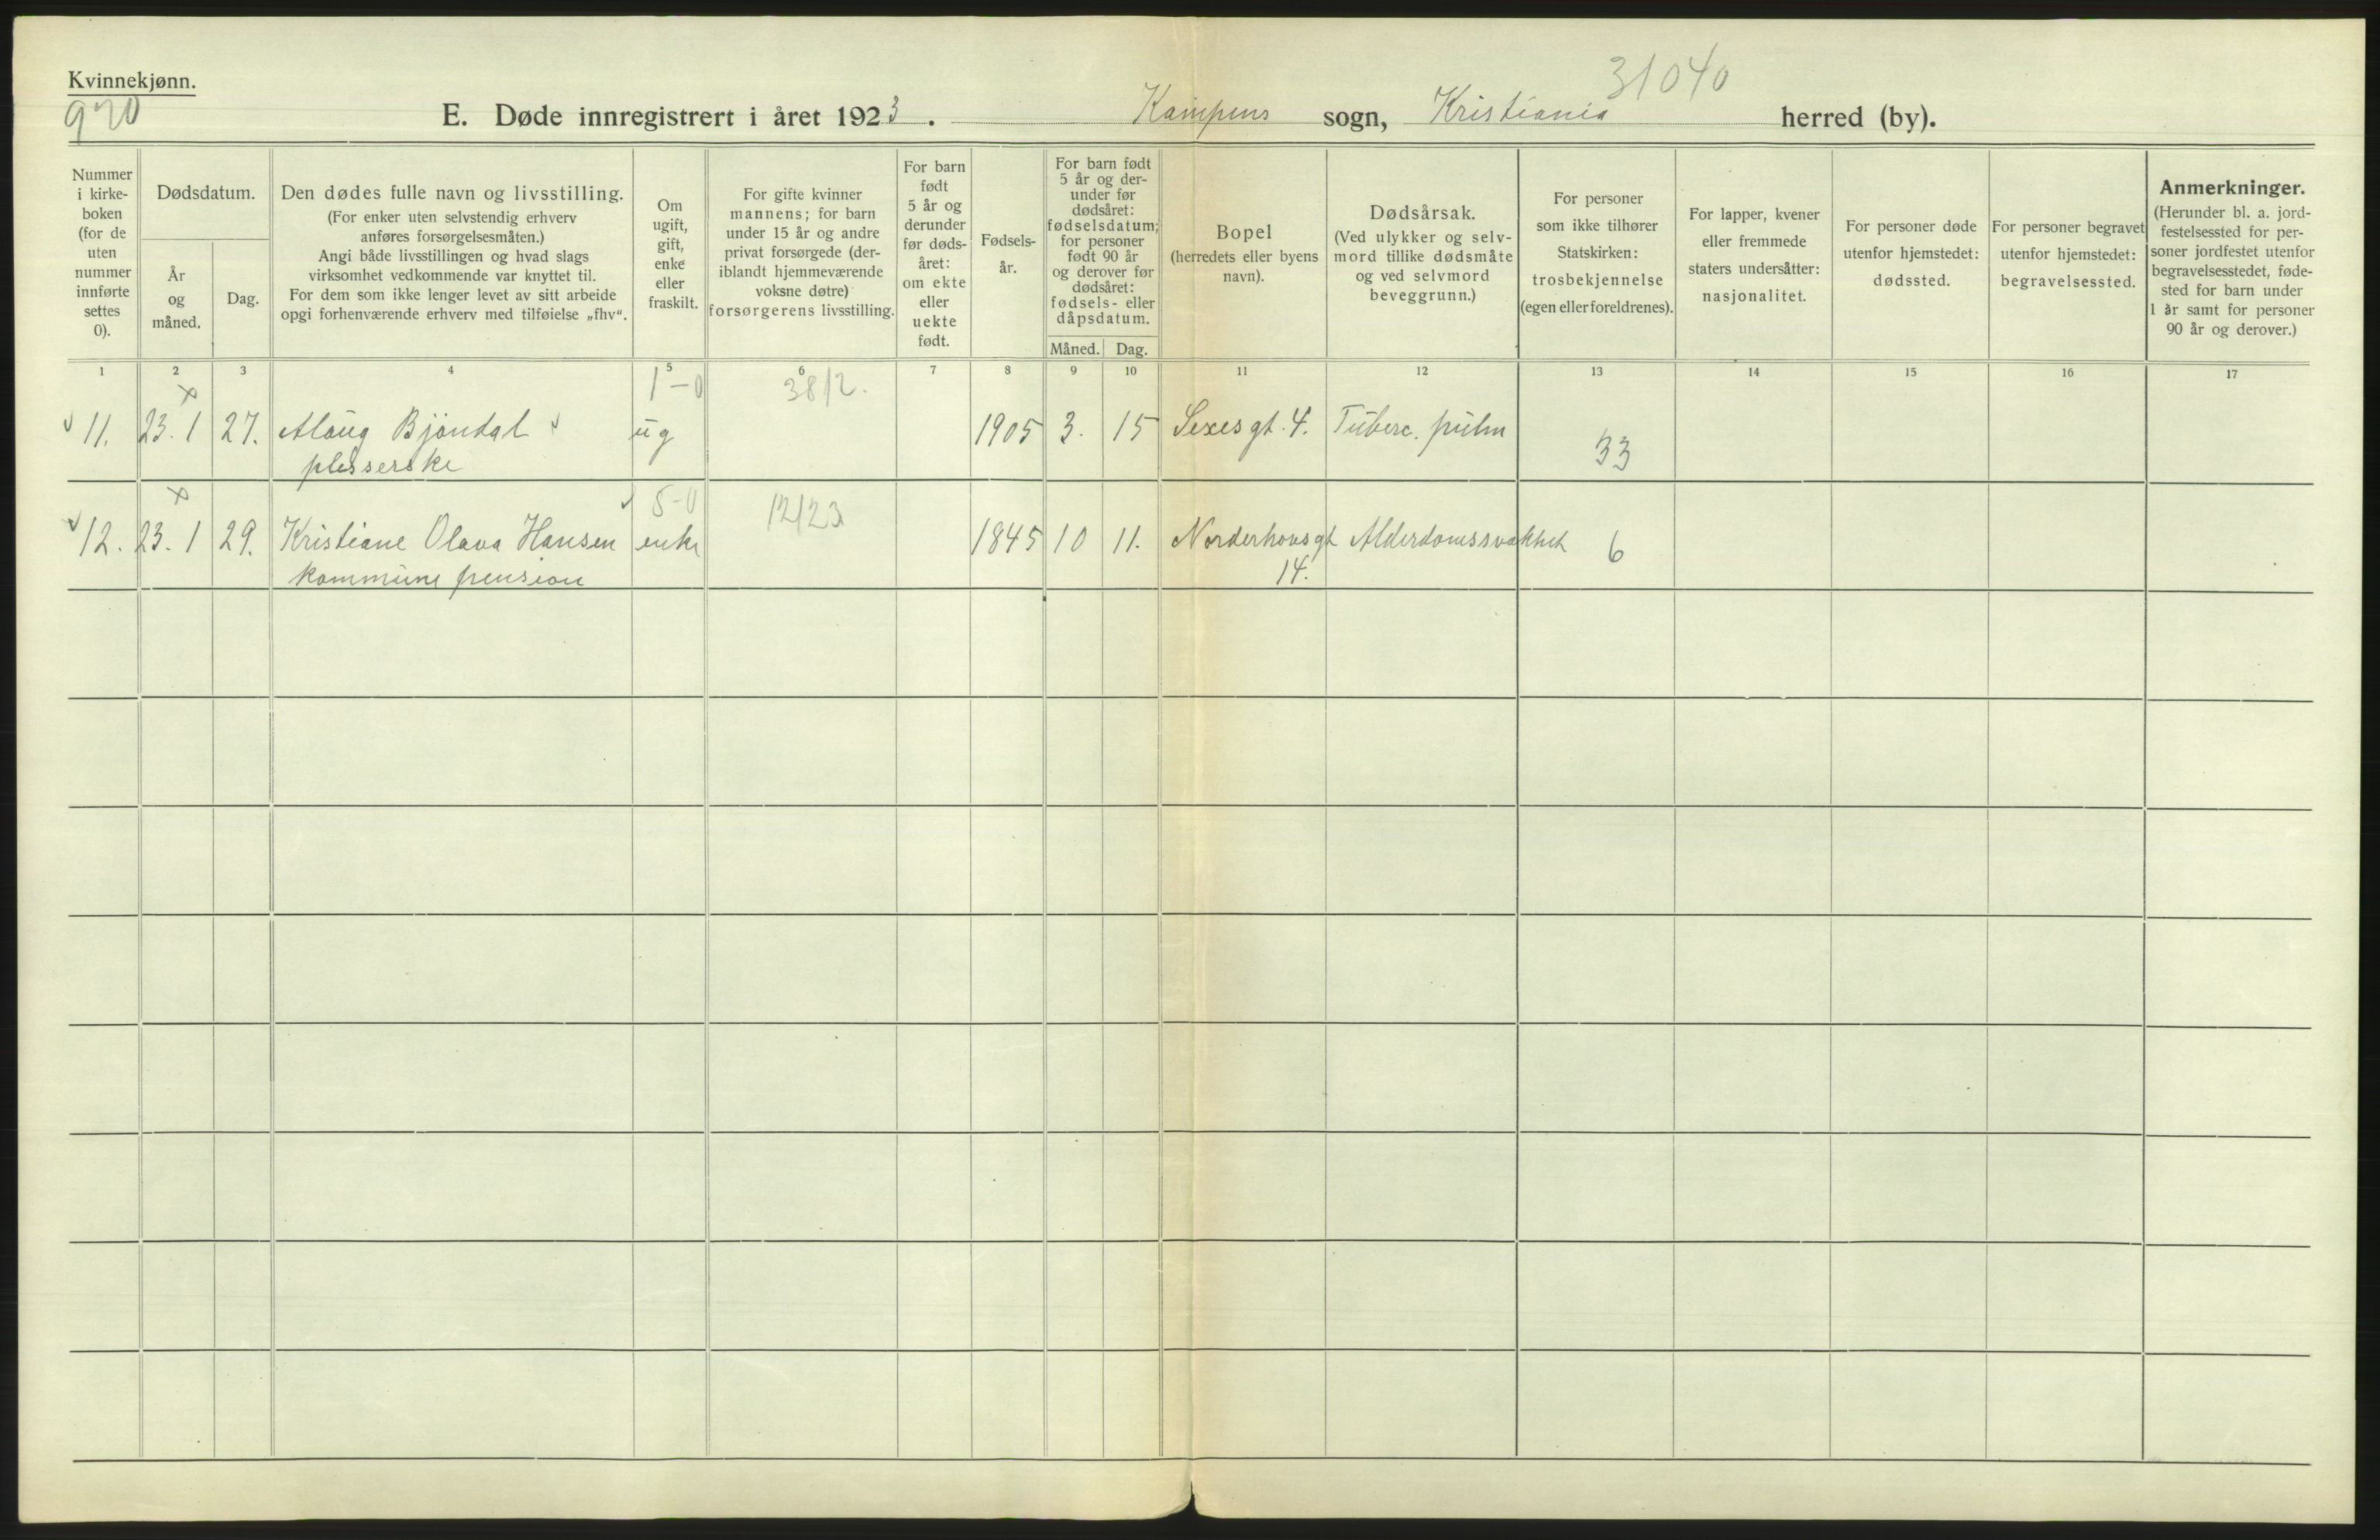 Kvinnekjønn.
920
31040
E. Døde innregistrert i året 1923. Kampens sogn, Kristiania herred (by).
Nummer
i kirke-
boken
(for de
uten
nummer
innførte
settes
0).
Dødsdatum.
År
og
måned.
Dag.
Den dødes fulle navn og livsstilling.
(For enker uten selvstendig erhverv
anføres forsørgelsesmåten.)
Angi både livsstillingen og hvad slags
virksomhet vedkommende var knyttet til.
For dem som ikke lenger levet av sitt arbeide
opgi forhenværende erhverv med tilføielse „fhv“.
Om
ugift,
gift,
enke
eller
fraskilt.
For gifte kvinner
mannens; for barn
under 15 år og andre
privat forsørgede (der-
iblandt hjemmeværende
voksne døtre)
forsørgerens livsstilling.
For barn
født
5 år og
derunder
før døds-
året:
om ekte
eller
uekte
født.
Fødsels-
år.
For barn født
5 år og der-
under før
dødsåret:
fødselsdatum;
for personer
født 90 år
og derover før
dødsåret:
fødsels- eller
dåpsdatum.
Måned. Dag.
Bopel
(herredets eller byens
navn).
Dødsårsak.
(Ved ulykker og selv-
mord tillike dødsmåte
og ved selvmord
beveggrunn.)
For personer
som ikke tilhører
Statskirken:
trosbekjennelse
(egen eller foreldrenes).
For lapper, kvener
eller fremmede
staters undersåtter:
nasjonalitet.
For personer døde
utenfor hjemstedet:
dødssted.
For personer begravet
utenfor hjemstedet:
begravelsessted.
Anmerkninger.
(Herunder bl. a. jord-
festelsessted for per-
soner jordfestet utenfor
begravelsesstedet, føde-
sted for barn under
1 år samt for personer
90 år og derover.)
1 2 3 4 5 6 7 8 9 10 11 12 13 14 15 16 17
x 1-0 38/2.
11. 23. 1 27. Aloug Bjöndal ug 1905 3. 15 Sexes gt. 4. Tuberc. pulm 33
plisserske
x 5-0 12/23
12. 23. 1 29. Kristiane Olava Hansen enke 1845 10 11. Norderhovsgt Alderdomssvakhet 6
kommune pension 14.